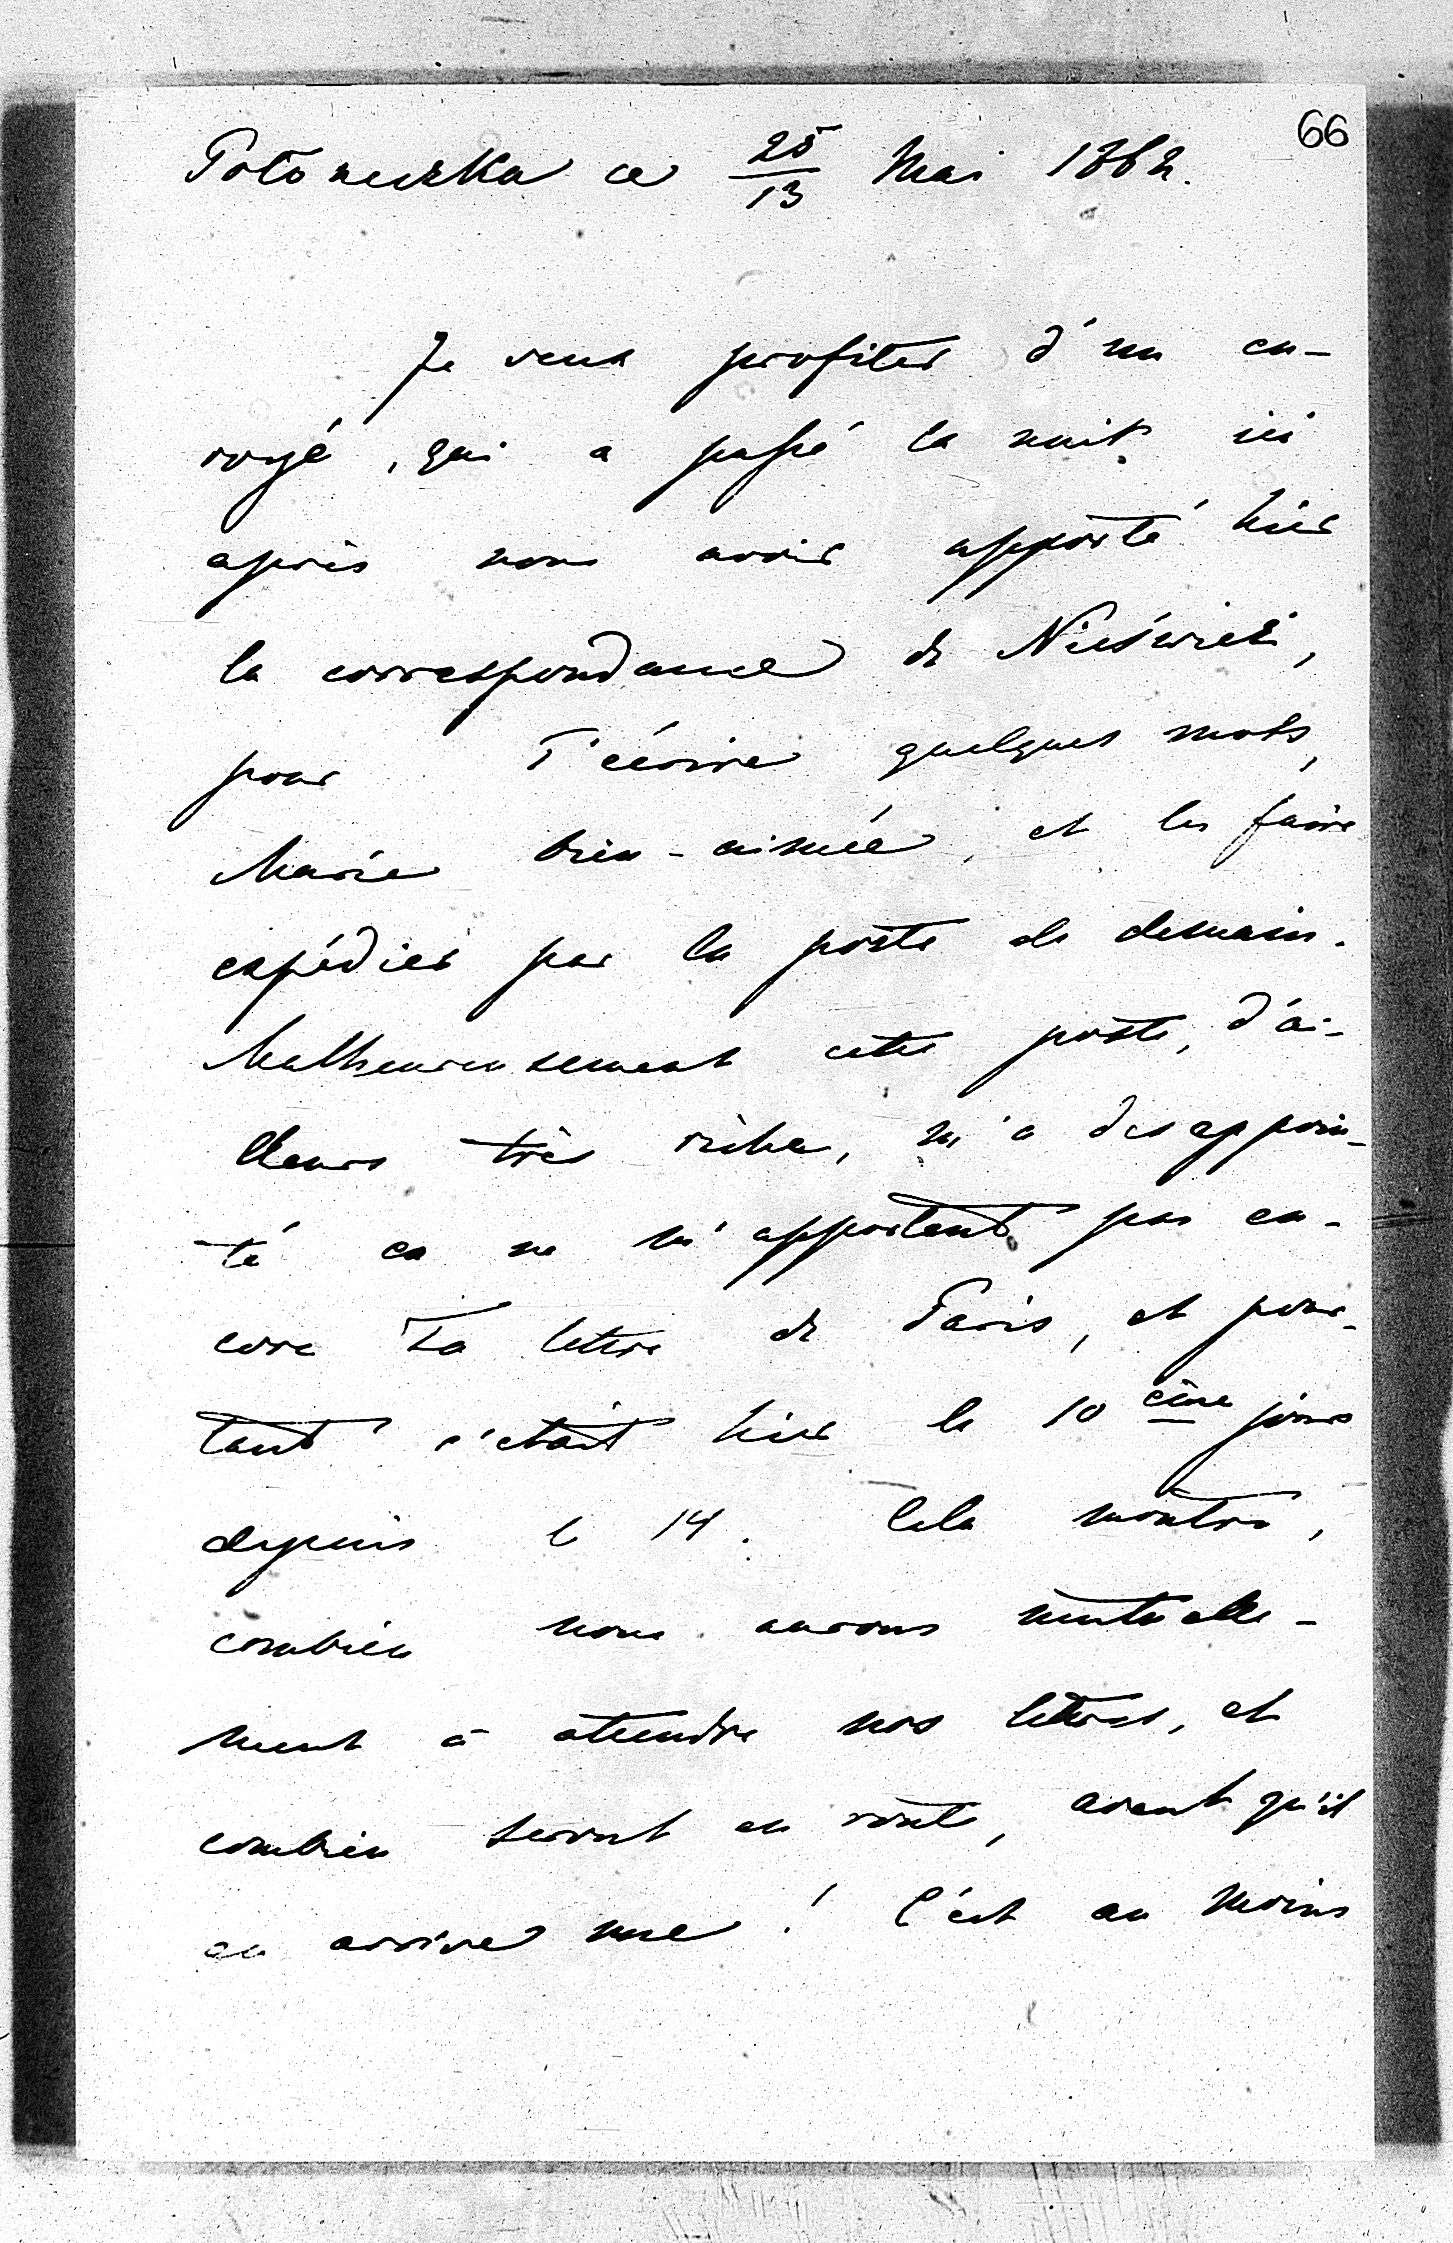 66
Potoneczka ce 25/13 Mai 1862.
Je veux profiter d'un en-
voyé, qui a passé la nuit ici
après nous avoir apporté hier
la correspondance de Nieśwież,
pour T'écrire quelques mots,
Marie bien-aimée, et les faire
expédier par la poste de demain.
Malheureusement cette poste, d'ai-
lleurs très riche, m'a desappoin-
té en ne m'apportant pas en-
core Ta lettre de Paris, et pour-
tant c'était hier le 10 ème jour
depuis le 14. Cela montre,
combien nous aurons mutuelle-
ment à attendre nos lettres, et
combien seront en route, avant qu'il
en arrive une! C'est au moins